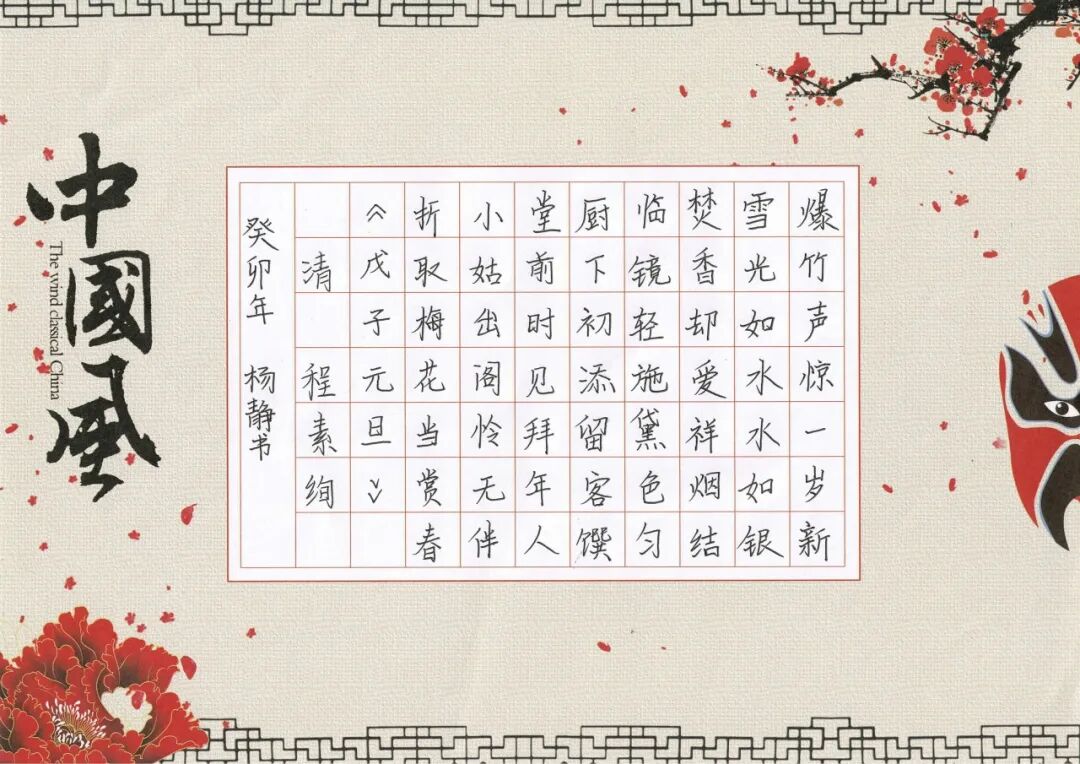 爆竹声惊一岁新
雪光如水水如银
焚香却爱祥烟结
临镜轻施黛色匀
厨下初添留客馔
堂前时见拜年人
小姑出阁怜无伴
折取梅花当赏春
《戊子元旦》
清 程素绚
癸卯年 杨静书
中國風
The wind classical China